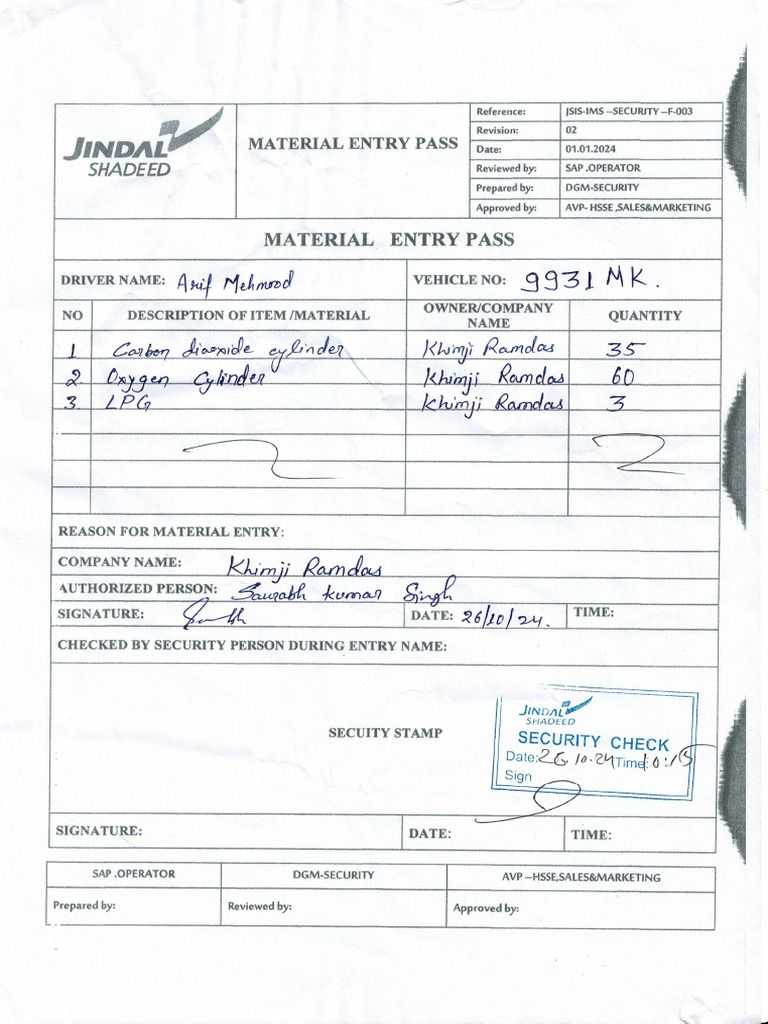 JINDAL
SHADEED
MATERIAL ENTRY PASS
Reference: JSIS-IMS –SECURITY –F-003
Revision: 02
Date: 01.01.2024
Reviewed by: SAP .OPERATOR
Prepared by: DGM-SECURITY
Approved by: AVP- HSSE ,SALES&MARKETING
MATERIAL ENTRY PASS
DRIVER NAME: Arif Mehmood VEHICLE NO: 9931 MK.
NO DESCRIPTION OF ITEM /MATERIAL OWNER/COMPANY NAME QUANTITY
1 Carbon diaoxide cylinder Khimji Ramdas 35
2. Oxygen Cylinder Khimji Ramdas 60
3. LPG Khimji Ramdas 3
REASON FOR MATERIAL ENTRY:
COMPANY NAME: Khimji Ramdas
AUTHORIZED PERSON: Saurabh kumar Singh
SIGNATURE: DATE: 26/10/24. TIME:
CHECKED BY SECURITY PERSON DURING ENTRY NAME:
SECUITY STAMP
JINDAL
SHADEED
SECURITY CHECK
Date: 26.10.24 Time 10:15
Sign
SIGNATURE: DATE: TIME:
SAP .OPERATOR DGM-SECURITY AVP –HSSE,SALES&MARKETING
Prepared by: Reviewed by: Approved by: